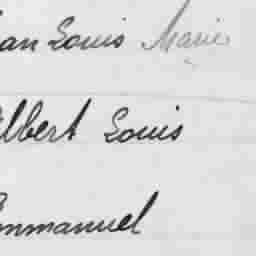 an Louis Marie
lbert Louis
mmanuel